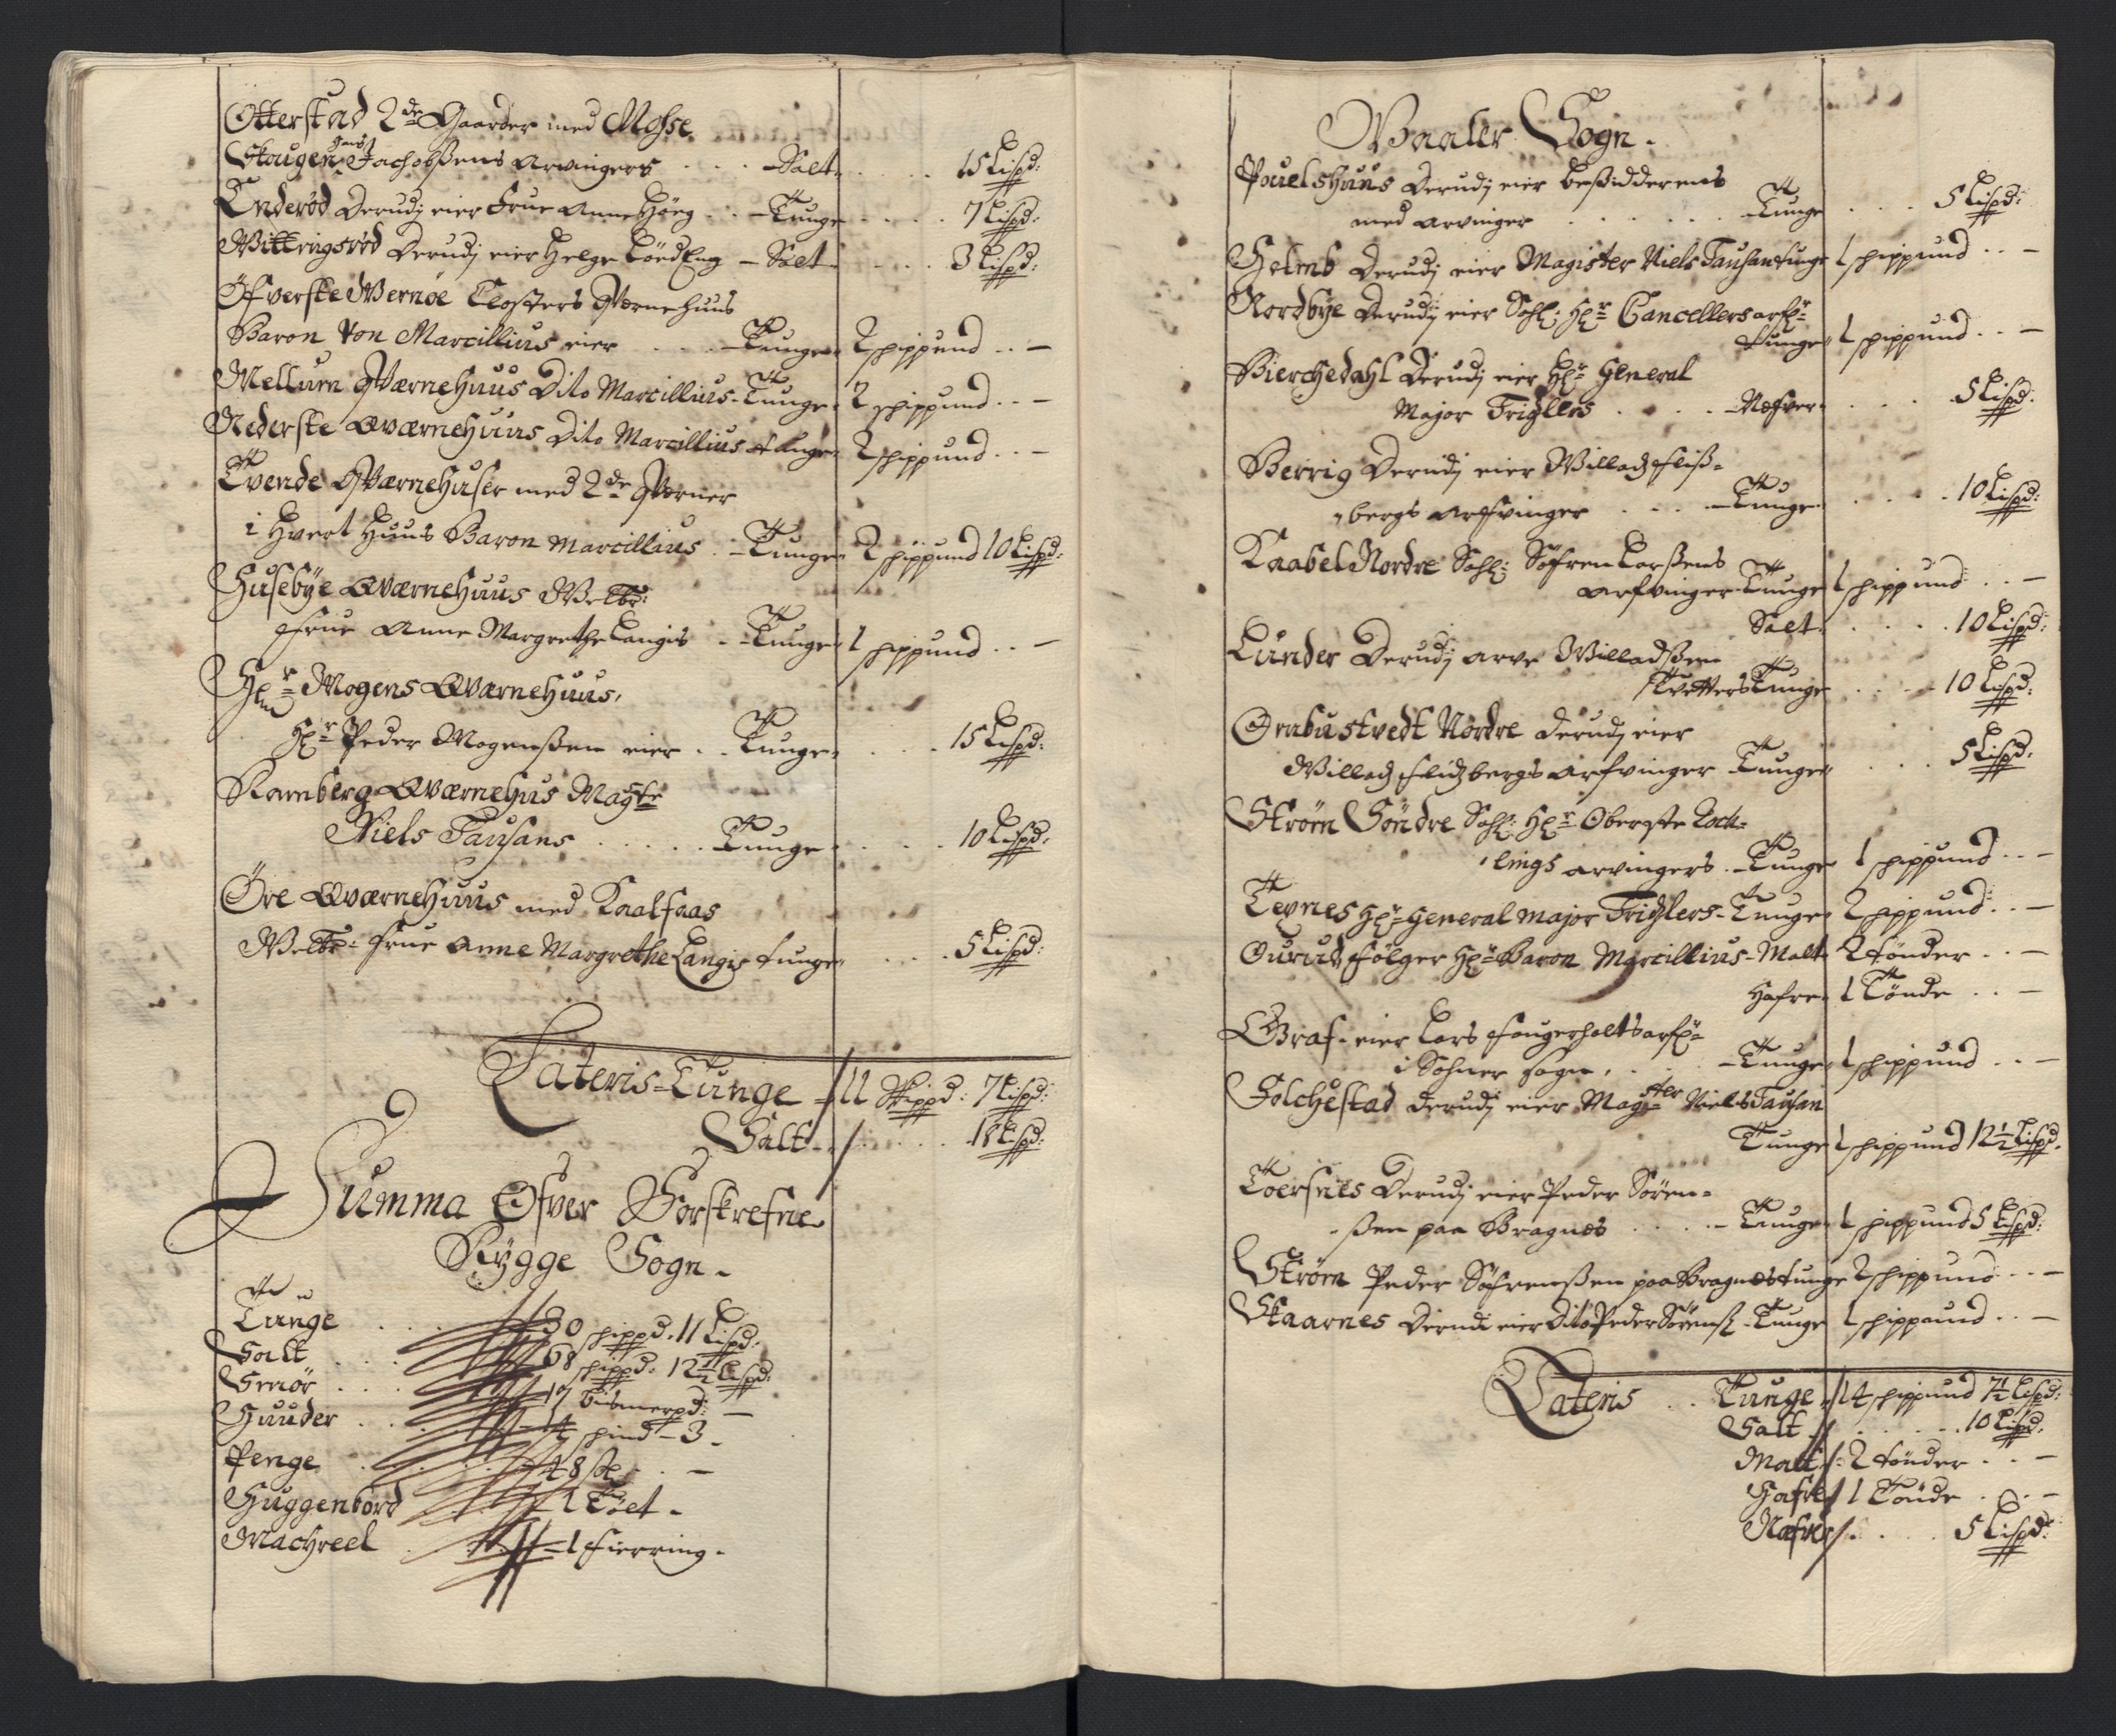 Otterstad 2de Gaarder med Mosse
Skougen Hans Jachobßens Arvingers . . . Salt . . . 15 Lispd:
Enderød Derudj eier Frue Anne Høeg . . Tunge . . . 7 Lispd:
Wittingsrød Derudj eier Helge Lördeng - Salt . . . 3 Lispd:
Öfverste Wernöe Closters Qværnehuus
Baron von Marcillius eier . . . Tunge 2 schippund . . -
Mellum Qværnehuus Dito Marcillius - Tunge 2 schippund . . -
Nederste Qværnehuus Dito Marcillius tunge 2 schippund . . -
Tvende Qværnehuser med 2de Qværner
i Hvert Huus Baron Marcillius . Tunge 2 schippund 10 Lispd:
Husebÿe Qværnehuus Welb:
Frue Anne Margrethe Langis . . Tunge 1 schippund . . -
Hr Mogens Qværnehuus,
Hr Peder Mogenßen eier . . Tunge . . . 15 Lispd:
Ramberg Qværnehus Magster
Niels Tausans . . . . . Tunge . . . 10 Lispd:
Öre Qværnehuus med Kaalfaas
Welb: Frue Anne Margrethe Langis tunge . . . 5 Lispd:
Lateris - Tunge - 11 Skippd: 7 Lispd:
Salt . . . 18 Lispd:
Summa Ofver Forskrefne
Rÿgge Sogn.
Tunge . . . 30 schippd. 11 Lispd:
Salt . . . 68 schippd. 12½ Lispd:
Smör . . . 17 bismerpd: -
Huuder . . schind - 3 -
Penge . . . 48 sk -
Huggenbord . . 1 Tölt -
Machreel . . . 1 fierring.
Waaler Sogn.
Pouelshuus Derudj eier beßidderens
med arvinger . . . . . . Tunge . . . 5 Lispd:
Holmb Derudj eier Magister Niels Tausan tunge 1 schippund . . -
Nordbÿe Derudj eier Sahl: Hr Cancellers arf:
tunge 1 schippund . . -
Bierchedahl Derudj eier Hr General
Major Trizlers . . . . Næfver . . . 5 Lispd:
Berrig Derudj eier Willadz fliß=
bergs arfvinger . . . Tunge . . . 10 Lispd:
Kaabel Nordre Sahl: Söfren Larßens
arfvinger Tunge 1 schippund . . -
Salt . . . . 10 Lispd:
Lunder Derudj arve Willadßen
Tunge . . . 10 Lispd:
Ornbustvedt Nordre derudj eier
Willadz flidzbergs arfvinger Tunge . . . 5 Lispd:
Ström Söndre Sahl: Hr Oberste Coch=
lings arvingers . Tunge 1 schippund . . -
Tejnes Hr General Major Trizlers - Tunge 2 schippund . . -
Ourud følger Hr Baron Marcillius - Malt 2 tönder . . -
Hafre 1 Tönde . . -
Graf - eier Lars Fougerholts arf:
i Sohner sogn, . . . Tunge 1 schippund . . -
Folchestad derudj eier Magister Niels Tausan
Tunge 1 schippund 12½ Lispd.
Toersnes Derudj eier Peder Sören=
ßen paa Bragnes . . . . Tunge 1 schippund 5 Lispd:
Ström Peder Söfrenßen paa Bragnes tunge 2 schippund . . -
Skaarnes Derudi eier Dito Peder Sörenß. Tunge 1 schippund . . -
Lateris . . Tunge 14 schippund 7½ Lispd:
Salt . . . . 10 Lispd.
Malt . 2 tönder . . -
Hafre 1 Tönde . . -
Næfver . . . 5 Lispd: